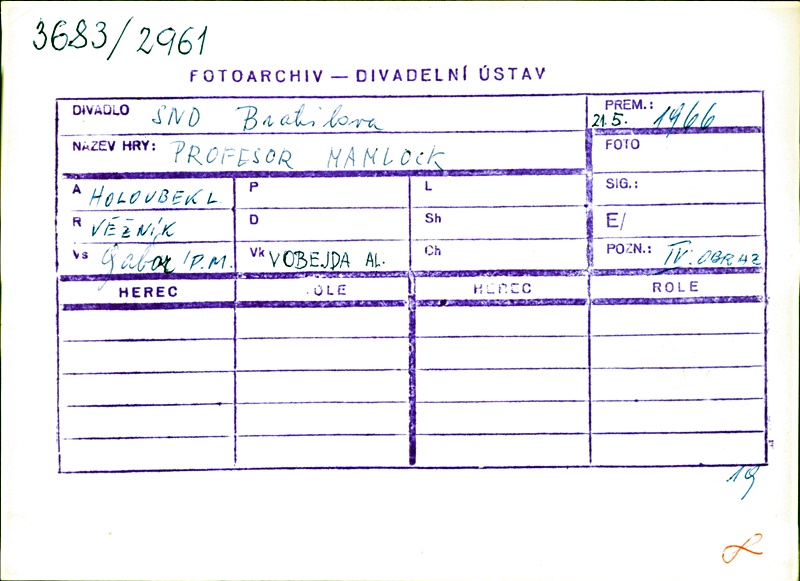 3683/2961
FOTOARCHIV — DIVADELNÍ ÚSTAV
DIVADLO SND Bratislava
PREM.: 21.5. 1966
NÁZEV HRY: PROFESOR MAMLOCK
FOTO
A HOLOUBEK L
P
L
SIG.:
R VĚŽNÍK
D
Sh
E/
Vs Gabor /P.M.
Vk VOBEJDA AL.
Ch
POZN.: IV. OBRAZ
HEREC ROLE HEREC ROLE
19